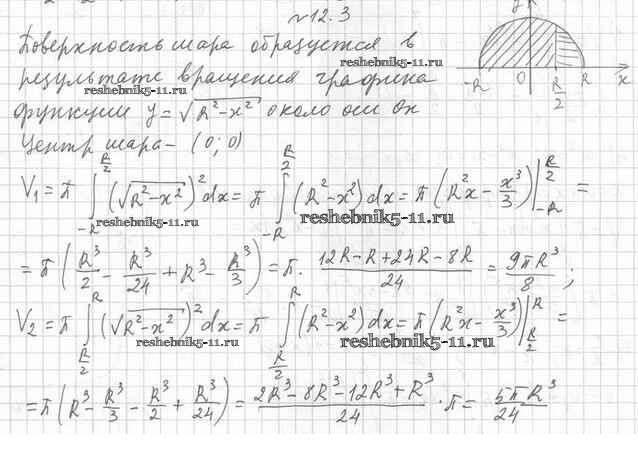 №12.3
Поверхность шара образуется в
результате вращения графика
функции y = √(R² − x²) около оси Ox
Центр шара – (0; 0)
y
-R 0 R/2 R x
V₁ = π ∫_{-R}^{R/2} (√(R² − x²))² dx = π ∫_{-R}^{R/2} (R² − x²) dx = π (R²x − x³/3) |_{-R}^{R/2} =
= π (R³/2 − R³/24 + R³ − R³/3) = π · (12R − R + 24R − 8R)/24 = 9πR³/8 ;
V₂ = π ∫_{R/2}^{R} (√(R² − x²))² dx = π ∫_{R/2}^{R} (R² − x²) dx = π (R²x − x³/3) |_{R/2}^{R} =
= π (R³ − R³/3 − R³/2 + R³/24) = (2R³ − 8R³ − 12R³ + R³)/24 · π = 5πR³/24
reshebnik5-11.ru
reshebnik5-11.ru
reshebnik5-11.ru
reshebnik5-11.ru
reshebnik5-11.ru
reshebnik5-11.ru